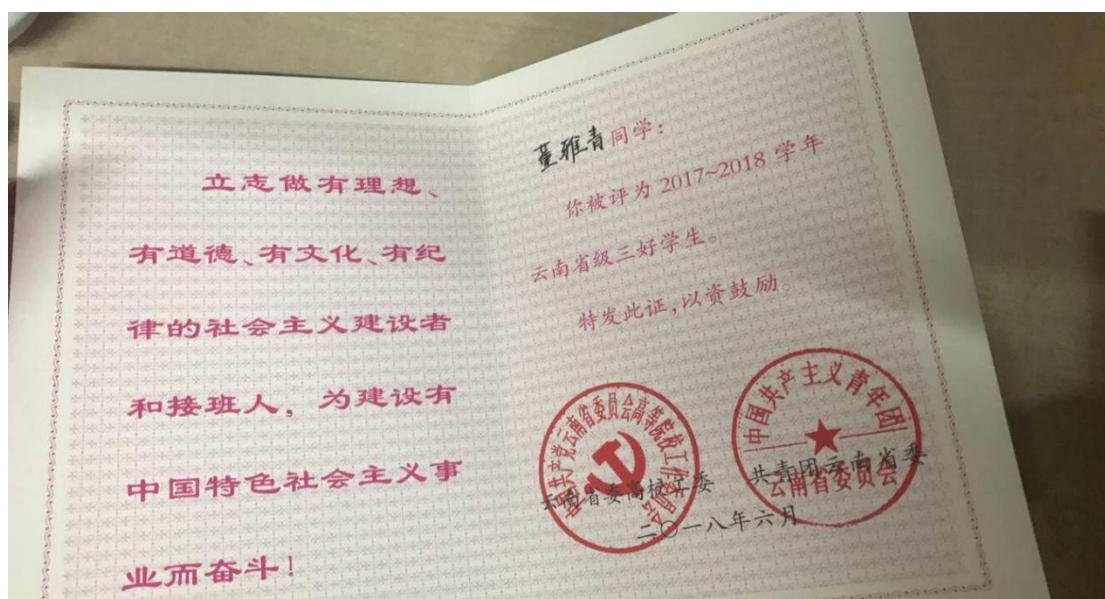 立志做有理想、
有道德、有文化、有纪
律的社会主义建设者
和接班人，为建设有
中国特色社会主义事
业而奋斗！
董雅青同学：
你被评为2017~2018学年
云南省级三好学生。
特发此证，以资鼓励。
中国共产党云南省委员会高等院校工作委员会
云南省委高校工委
中国共产主义青年团
云南省委员会
共青团云南省委
二〇一八年六月